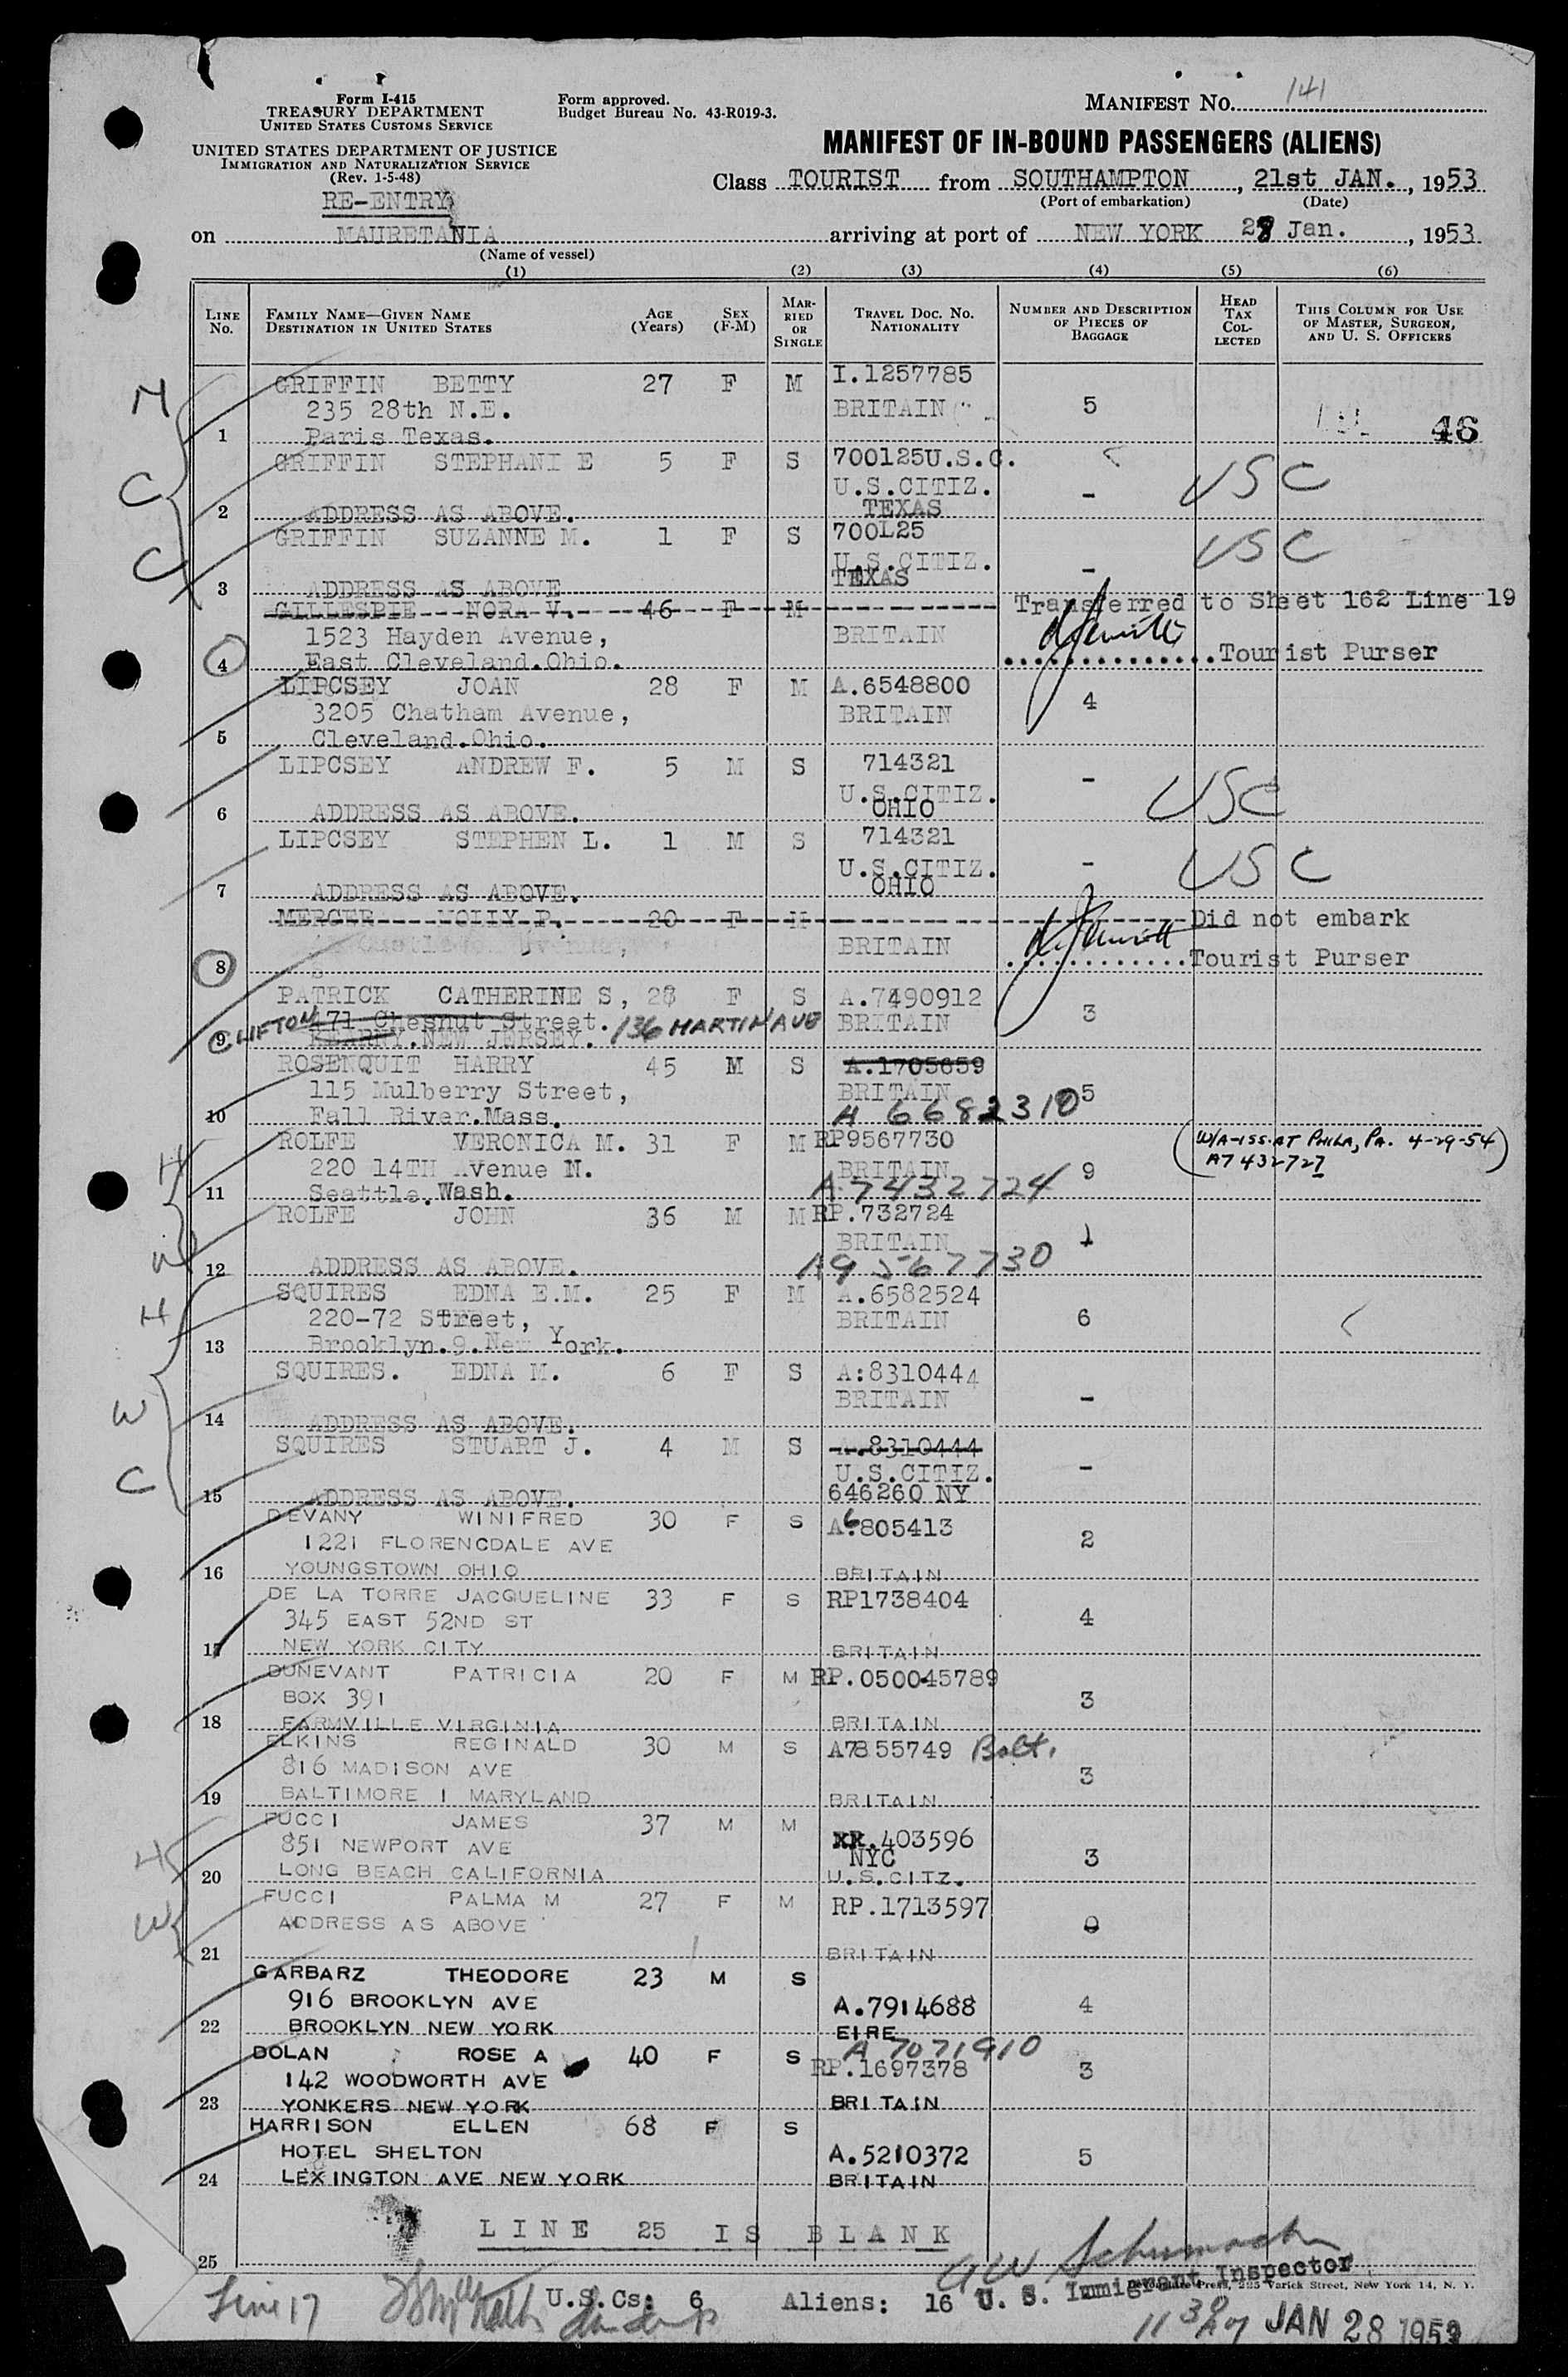 Form I-415
TREASURY DEPARTMENT
UNITED STATES CUSTOMS SERVICE
UNITED STATES DEPARTMENT OF JUSTICE
IMMIGRATION AND NATURALIZATION SERVICE
(Rev. 1-5-48)
RE-ENTRY
Form approved.
Budget Bureau No. 43-R019-3.
MANIFEST NO. 141
MANIFEST OF IN-BOUND PASSENGERS (ALIENS)
Class TOURIST from SOUTHAMPTON, 21st JAN., 1953
(Port of embarkation) (Date)
on MAURETANIA arriving at port of NEW YORK 28 Jan., 1953
(Name of vessel)
(1) (2) (3) (4) (5) (6)
LINE NO. FAMILY NAME—GIVEN NAME DESTINATION IN UNITED STATES AGE (Years) SEX (F-M) MARRIED OR SINGLE TRAVEL DOC. NO. NATIONALITY NUMBER AND DESCRIPTION OF PIECES OF BAGGAGE HEAD TAX COLLECTED THIS COLUMN FOR USE OF MASTER, SURGEON, AND U. S. OFFICERS
M GRIFFIN BETTY 27 F M I.1257785
235 28th N.E. BRITAIN 5
1 Paris Texas. 46
C GRIFFIN STEPHANI E 5 F S 700125U.S.C.
U.S.CITIZ. - USC
2 ADDRESS AS ABOVE. TEXAS
C GRIFFIN SUZANNE M. 1 F S 700L25
U.S.CITIZ. - USC
3 ADDRESS AS ABOVE TEXAS
GILLESPIE NORA V. 46 F M Transferred to Sheet 162 Line 19
1523 Hayden Avenue, BRITAIN
4 East Cleveland.Ohio. Tourist Purser
LIPCSEY JOAN 28 F M A.6548800
3205 Chatham Avenue, BRITAIN 4
5 Cleveland.Ohio.
LIPCSEY ANDREW F. 5 M S 714321
U.S.CITIZ. - USC
6 ADDRESS AS ABOVE. OHIO
LIPCSEY STEPHEN L. 1 M S 714321
U.S.CITIZ. - USC
7 ADDRESS AS ABOVE. OHIO
MERCER MOLLY P. 20 F M Did not embark
BRITAIN
8 Tourist Purser
PATRICK CATHERINE S, 28 F S A.7490912
471 Chesnut Street. 136 MARTIN AVE BRITAIN 3
9 CLIFTON KEARNY.NEW JERSEY.
ROSENQUIT HARRY 45 M S A.1705659
115 Mulberry Street, BRITAIN 5
10 Fall River.Mass. A 6682310
H ROLFE VERONICA M. 31 F M RP9567730 (W/A-ISS. AT PHILA, PA. 4-29-54
220 14TH Avenue N. BRITAIN 9 A7432727)
11 Seattle.Wash. A7432724
W ROLFE JOHN 36 M M RP.732724
BRITAIN 1
12 ADDRESS AS ABOVE. A9567730
H SQUIRES EDNA E.M. 25 F M A.6582524
220-72 Street, BRITAIN 6
13 Brooklyn.9.New York.
W SQUIRES. EDNA M. 6 F S A:8310444
BRITAIN -
14 ADDRESS AS ABOVE.
C SQUIRES STUART J. 4 M S A.8310444
U.S.CITIZ. -
15 ADDRESS AS ABOVE. 646260 NY
DEVANY WINIFRED 30 F S A6.805413
1221 FLORENCDALE AVE 2
16 YOUNGSTOWN OHIO BRITAIN
DE LA TORRE JACQUELINE 33 F S RP1738404
345 EAST 52ND ST 4
17 NEW YORK CITY BRITAIN
DUNEVANT PATRICIA 20 F M RP.050045789
BOX 391 3
18 FARMVILLE VIRGINIA BRITAIN
ELKINS REGINALD 30 M S A7855749 Balt.
816 MADISON AVE 3
19 BALTIMORE 1 MARYLAND BRITAIN
H FUCCI JAMES 37 M M
851 NEWPORT AVE XR.403596 3
NYC
20 LONG BEACH CALIFORNIA U.S.CITZ.
W FUCCI PALMA M 27 F M RP.1713597
ADDRESS AS ABOVE 0
21 BRITAIN
GARBARZ THEODORE 23 M S
916 BROOKLYN AVE A.7914688 4
22 BROOKLYN NEW YORK EIRE
DOLAN ROSE A 40 F S A 7071910
142 WOODWORTH AVE RP.1697378 3
23 YONKERS NEW YORK BRITAIN
HARRISON ELLEN 68 F S
HOTEL SHELTON A.5210372 5
24 LEXINGTON AVE NEW YORK BRITAIN
LINE 25 IS BLANK
25
GW Schumacher
U. S. Immigrant Inspector
Press, 225 Varick Street, New York 14, N. Y.
Line 17 U.S.Cs: 6 Aliens: 16
11 30 AM JAN 28 1953